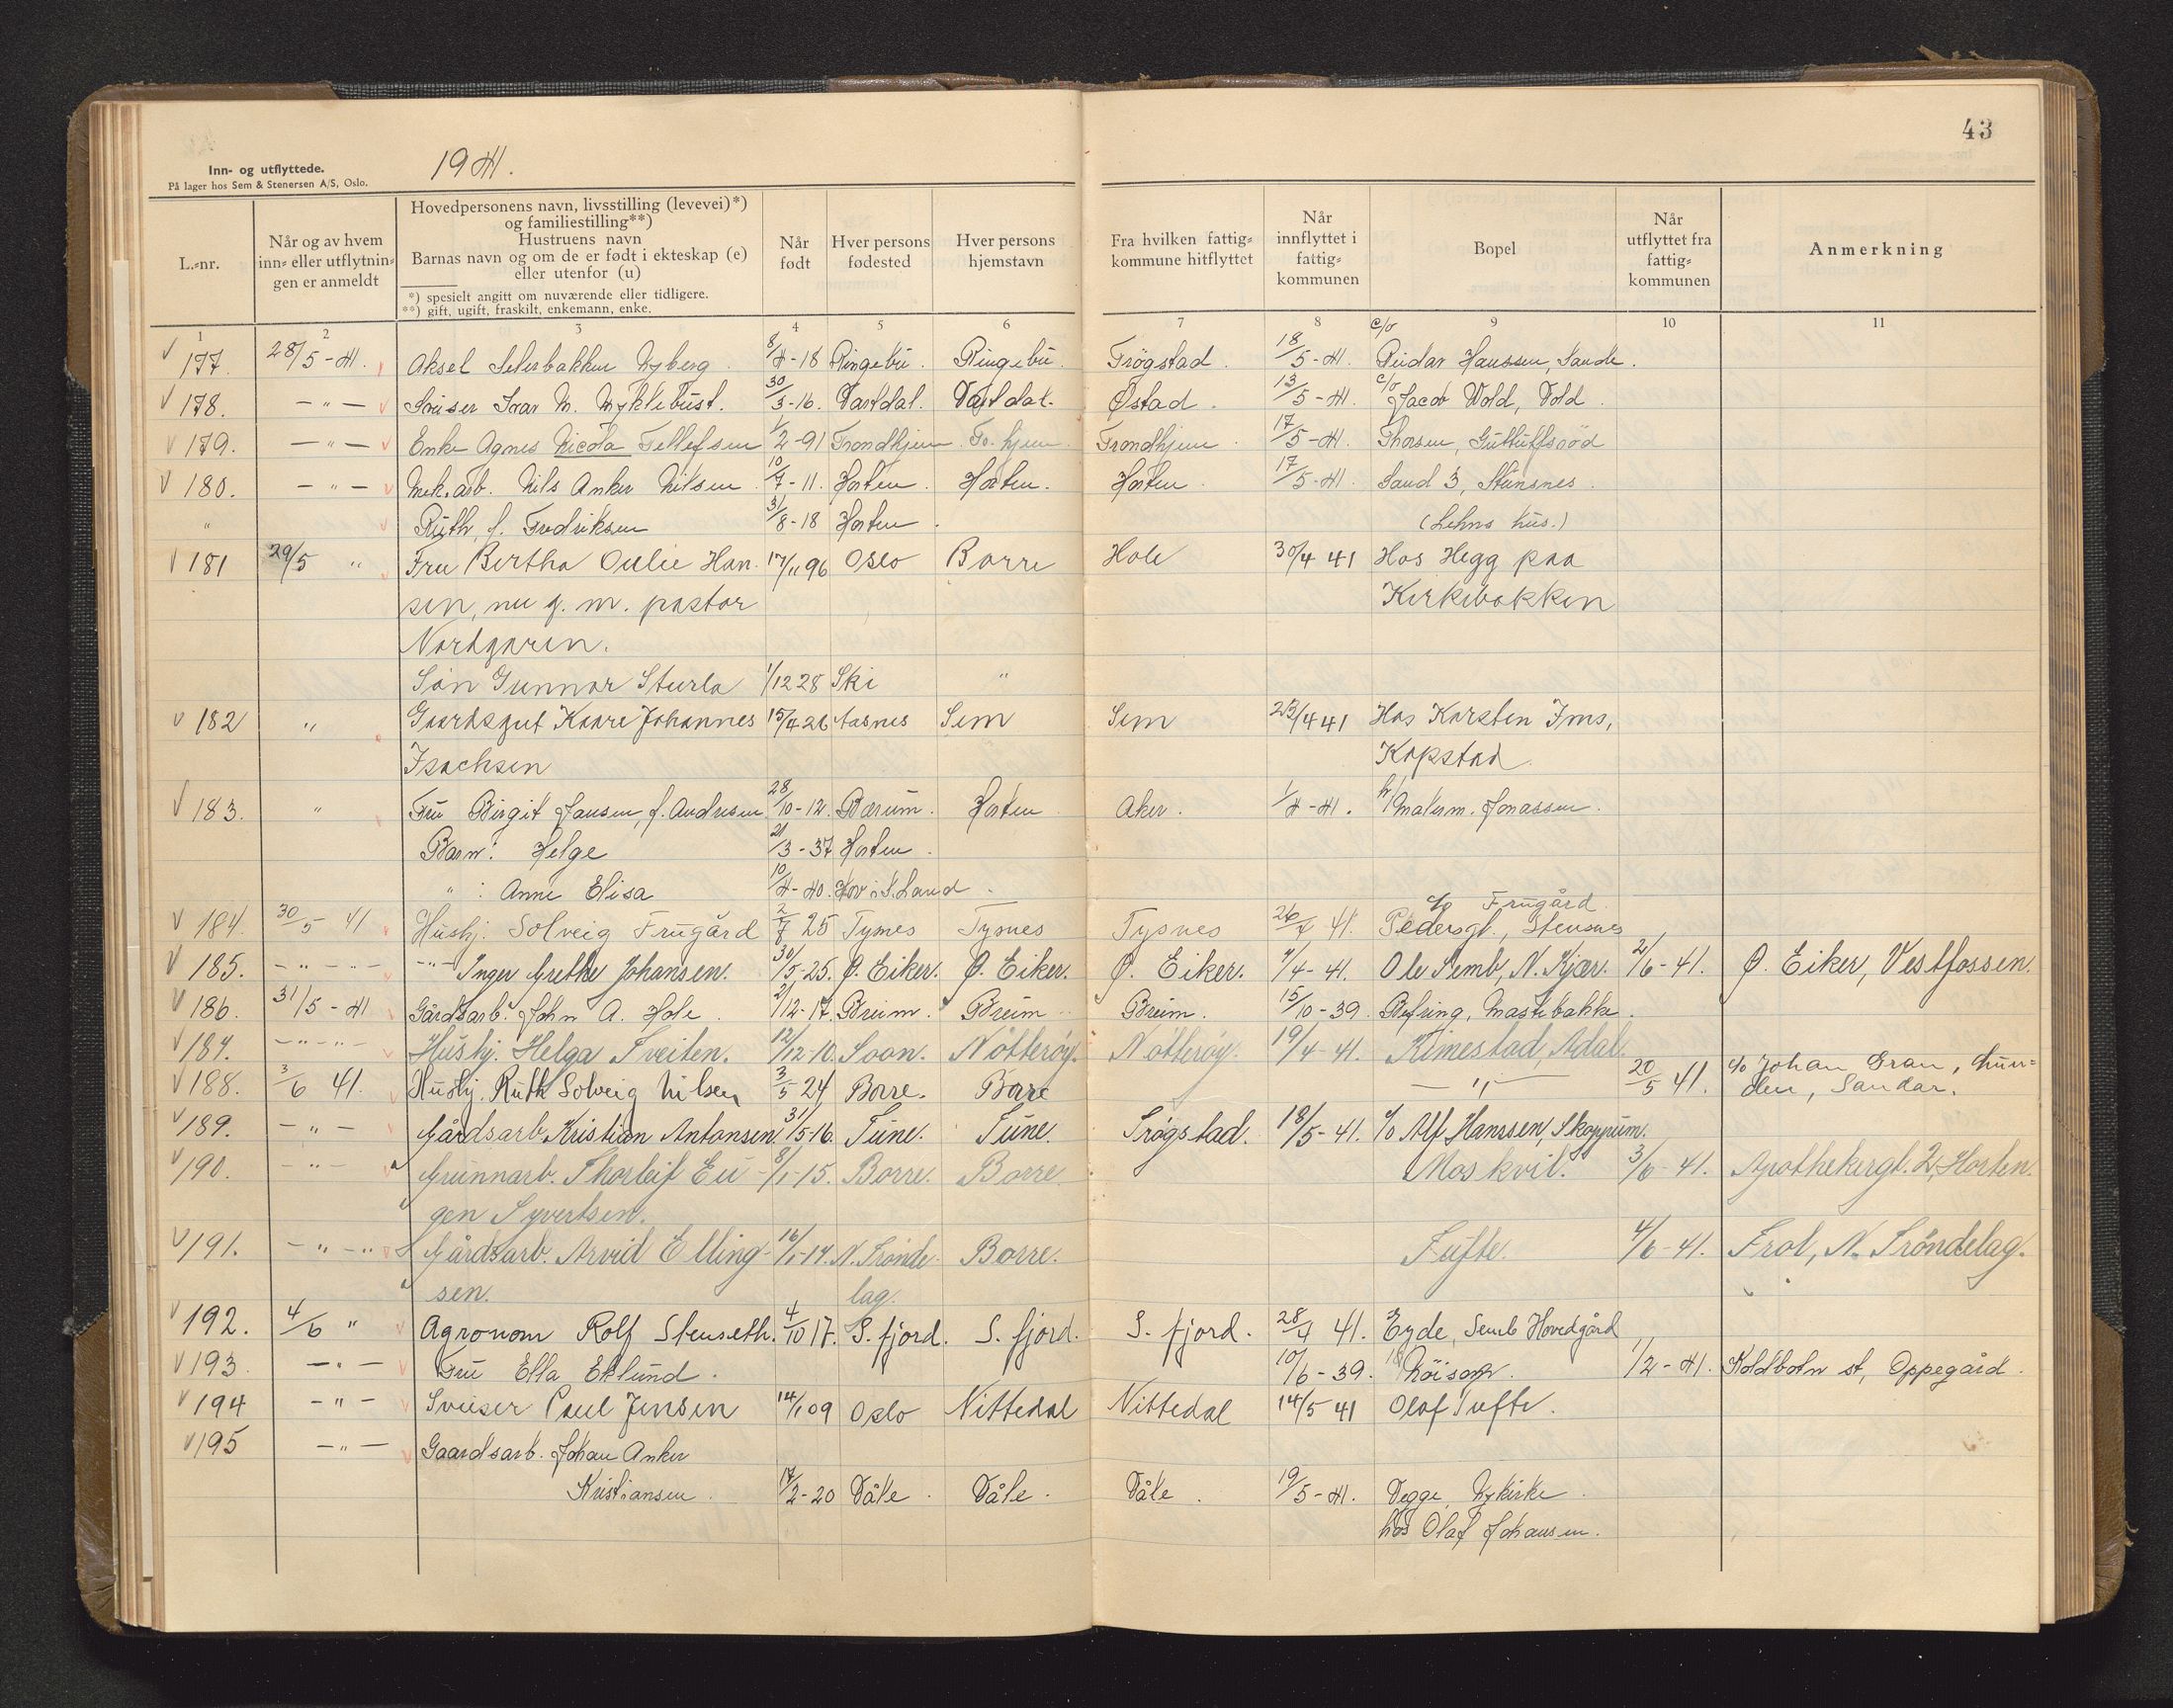 43
Inn- og utflyttede.
På lager hos Sem & Stenersen A/S, Oslo.
1941.
L.-nr. | Når og av hvem inn- eller utflytningen er anmeldt | Hovedpersonens navn, livsstilling (levevei)*) og familiestilling**) Hustruens navn Barnas navn og om de er født i ekteskap (e) eller utenfor (u) *) spesielt angitt om nuværende eller tidligere. **) gift, ugift, fraskilt, enkemann, enke. | Når født | Hver persons fødested | Hver persons hjemstavn | Fra hvilken fattigkommune hitflyttet | Når innflyttet i fattigkommunen | Bopel | Når utflyttet fra fattigkommunen | Anmerkning
1 2 3 4 5 6 7 8 9 10 11
177. 28/5-41. Aksel Seterbakken Nyberg. 8/4-18 Ringebu. Ringebu. Trögstad. 18/5-41. c/o Reidar Hanssen, Sande.
178. -"- Sveiser Ivar M. Myklebust. 30/3-16. Vartdal. Vartdal. Østad. 13/5-41. c/o Jacob Wold, Vold.
179. -"- Enke Agnes Nicola Tellefsen 1/2-91 Trondhjem Tr.hjem. Trondhjem. 17/5-41. Thorsen,
180. -"- Mek.arb. Nils Anker Nilsen 10/7-11. Horten. Horten. Horten. 17/5-41. Sand 3, Steinsnes.
" Ruth, f. Fredriksen 31/8-18 Horten. (Lehns hus.)
181 29/5 " Fru Bertha Oulie Han- 17/11 96 Oslo Borre Hole 30/4 41 Hos Hegg paa
sen, nu g. m. pastor Kirkebakken
Nordgaren.
Søn Gunnar Sturla 1/12 28 Ski "
182 " Gaardsgut Kaare Johannes 15/4 26 Aasnes Sem Sem 23/4 41 Hos Karsten Ims,
Isachsen Kopstad.
183. " Fru Birgit Jansen, f. Andresen 28/10-12. Bærum. Horten. Aker. 1/4-41. h/ Malerm. Jonassen.
Barn: Helge 21/3-37 Horten.
" : Anne Elisa 10/4-40. Hov i S. Land.
184. 30/5 41. Hushj. Solveig Frugård 2/7 25 Tysnes Tysnes Tysnes 26/4 41. c/o Frugård. Pedersgt., Stensnes
185. -"-"- -"- Inger Grethe Johansen. 30/5-25. Ø. Eiker. Ø. Eiker. Ø. Eiker. 7/4-41. Ole Semb, N. Kjær. 2/6-41. Ø. Eiker, Vestfossen.
186. 31/5-41 Gårdsarb. John A. Hole. 2/12-17. Breim. Breim. Breim. 15/10-39. Befring, Mastebakke.
187. -"-"- Hushj. Helga Tveiten. 12/12-10. Soon. Nøtterøy. Nøtterøy. 19/4-41. Kimestad, Adal.
188. 3/6 41. Hushj. Ruth Solveig Nilsen 3/5 24 Borre. Borre -"- 20/5 41. c/o Johan Gran, Lunden, Sandar.
189. -"- Gårdsarb. Kristian Antonsen. 31/5-16. Tune. Tune. Trøgstad. 18/5-41. c/o Alf Hanssen, Skoppum.
190. -"- Grunnarb. Thorleif Eu- 8/1-15. Borre. Borre. Moskvil. 3/6-41. Apothekergt. 2, Horten.
gen Syvertsen.
191. -"-"- Gårdsarb. Arvid Elling- 16/1-14. N. Trønde- Borre. Tufte. 4/6-41. Frol, N. Trøndelag.
sen. lag.
192. 4/6 " Agronom Rolf Stenseth. 4/10 17. S. fjord. S. fjord. S. fjord. 28/4 41. Eyde, Semb Hovedgård
193. -"- Fru Ella Eklund. 10/6-39. 1/2-41. Koldbotn st, Oppegård.
194 -"- Sveiser Paul Jensen 14/1 09 Oslo Nittedal Nittedal 14/5 41 Olaf Tufte.
195 -"- Gaardsarb. Johan Anker
Kristiansen. 17/2-20 Våle. Våle. Våle. 19/5-41. Vegge, Nykirke.
hos Olaf Johansen.